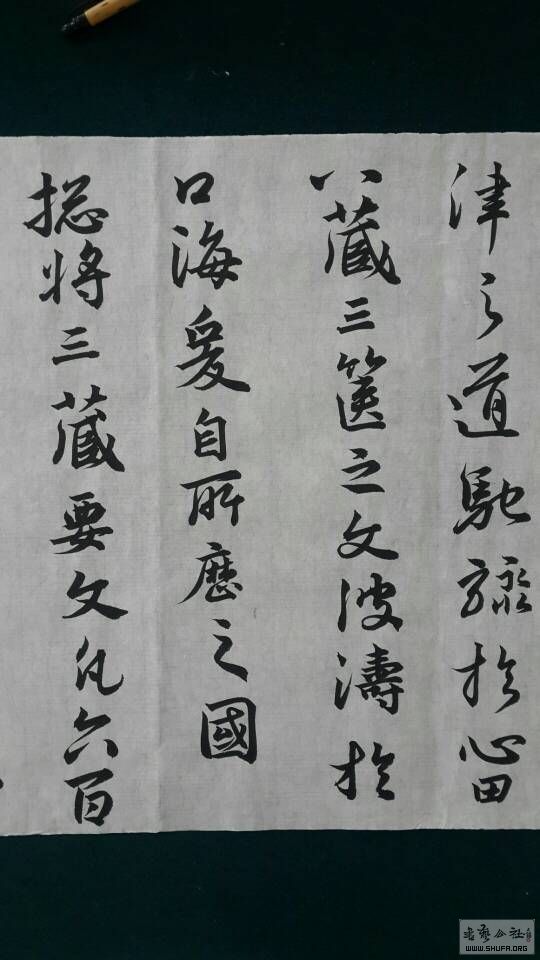 津之道馳驟於心田
八藏三箧之文波濤於
口海爰自所歷之國
揔將三藏要文凡六百
书艺公社
WWW.SHUFA.ORG